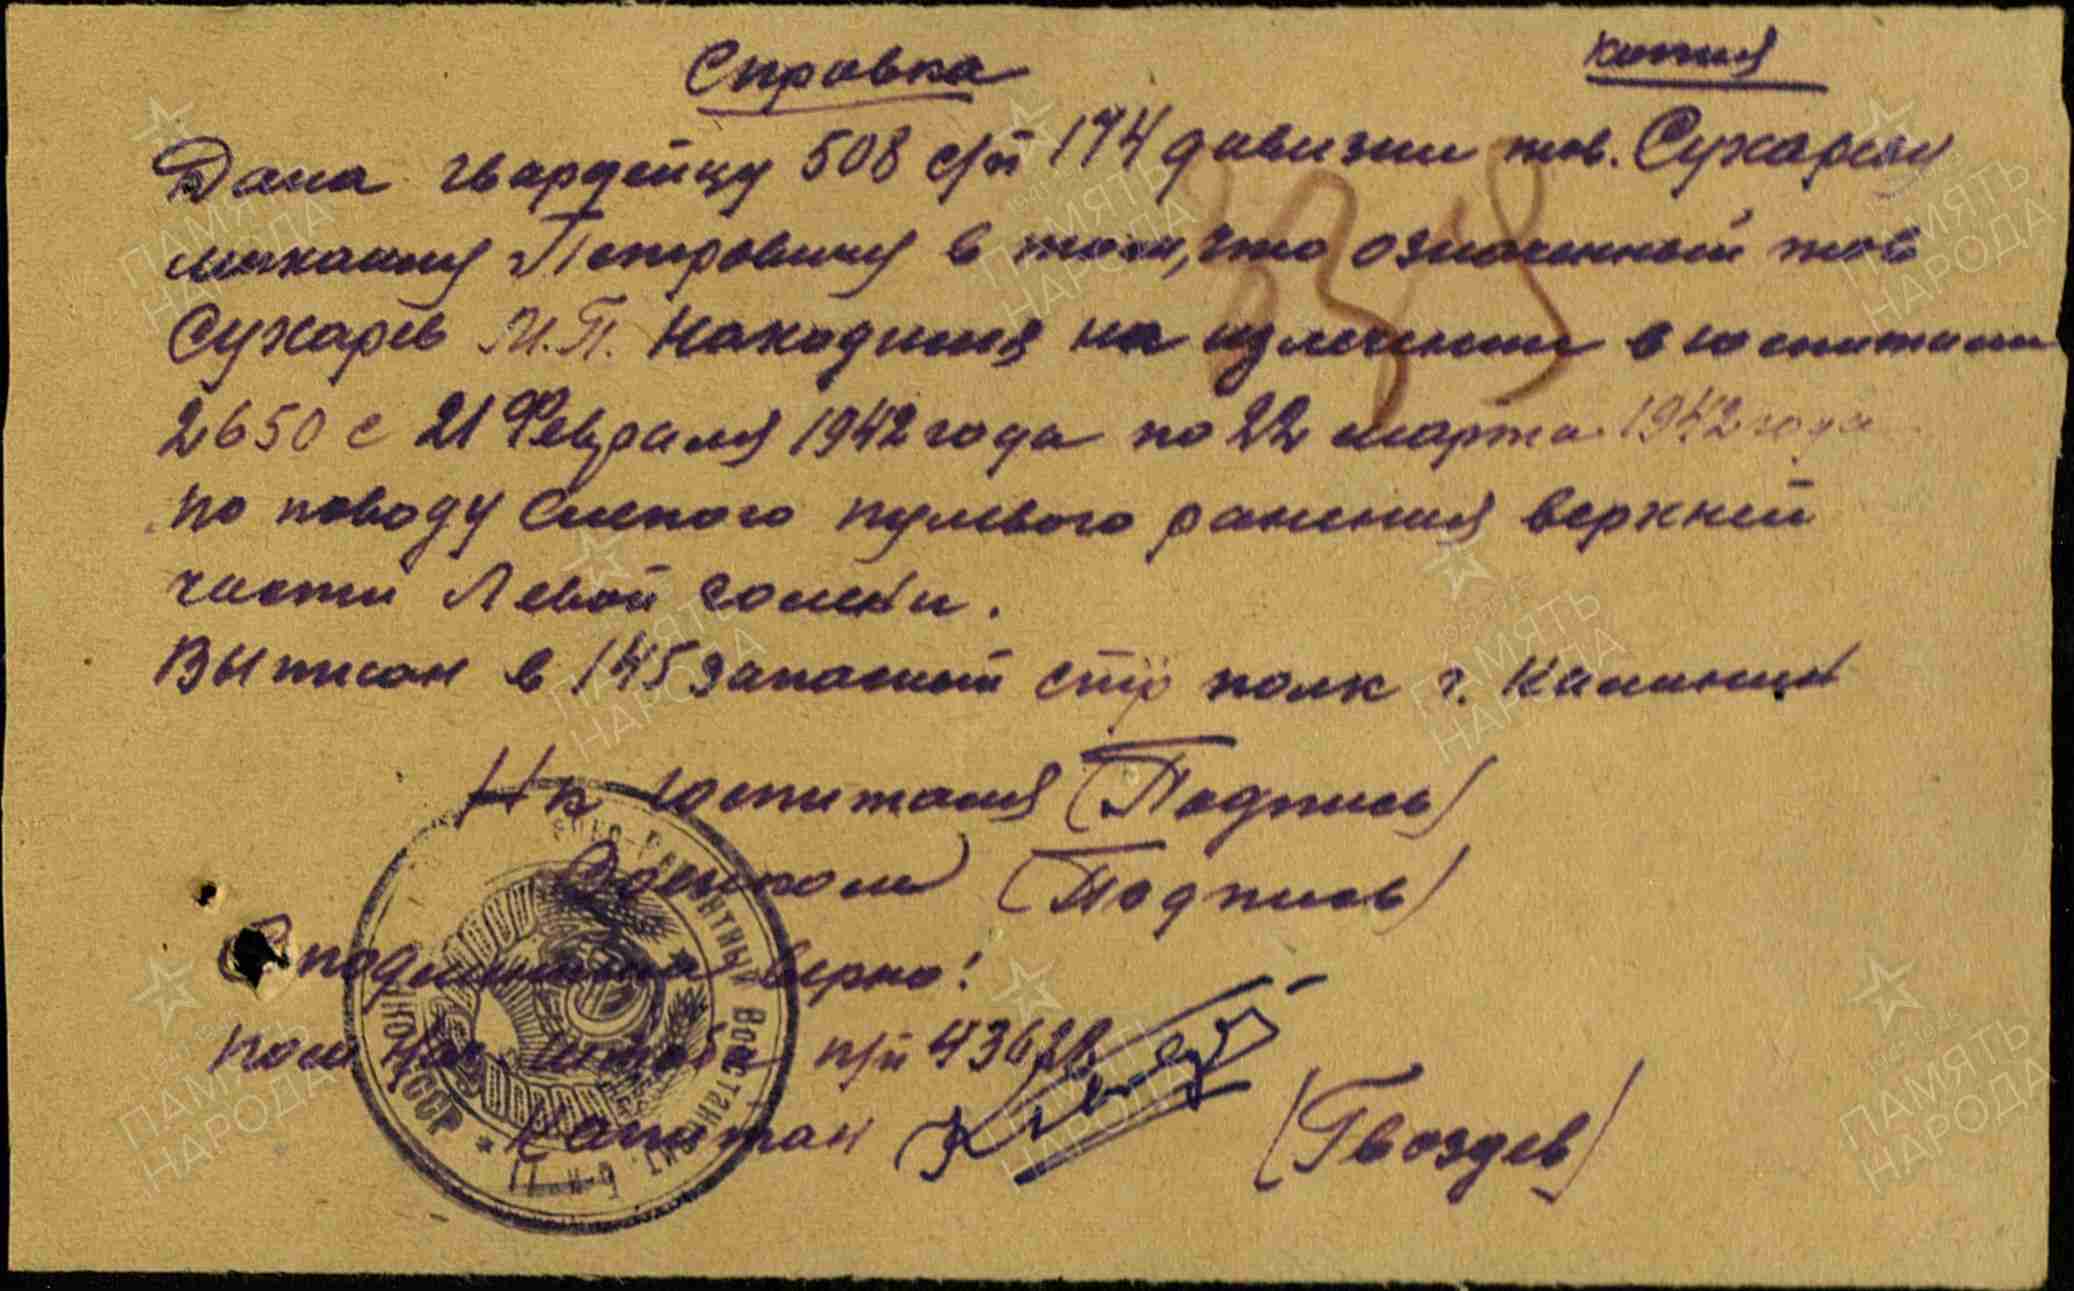 Справка
копия
Дана гвардейцу 508 с/п 174 дивизии тов. Сухареву
михаилу Петровичу в том, что означенный тов
Сухарев М.П. Находился на излечении в госпитали
2650 с 21 Февраля 1942 года по 22 марта 1942 года
по поводу слепого пулевого ранения верхней
части Левой голени.
Выписан в 145 запасный стр полк г. Калинин
Н-к госпиталя (Подпись)
Военком (Подпись)
С подлинным верно!
пом нач. штаба п/п
Капитан
(Гвоздев)
СССР
ПАМЯТЬ
НАРОДА